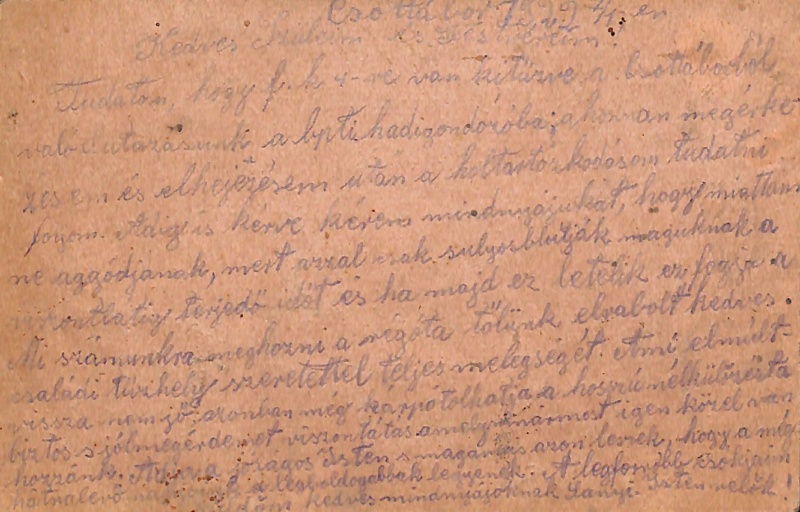 Csóttábor 1922 4/I-én
Kedves Szüleim és Testvéreim!
Tudatom, hogy f. h. 4-re van kitűzve a Csóttáborból
való elutazásunk a bpti hadigondozóba, a honnan megérke
zésem és elhejezésem után a holtartózkodásom tudatni
fogom. Adig is kérve kérem mindnyájukat, hogy miattam
ne aggódjanak, mert azzal csak sulyosbbítják maguknak a
viszontlátásig terjedő időt és ha majd ez letelik ez fogja a
Mi számunkra meghozni a régóta tőlünk elrabolt kedves
családi tűzhely szeretettel teljes melegségét. Ami elmúlt
vissza nem jő, azonban még kárpótolhatja a hosszú nélkülözést a
biztos s jólmegérdemelt viszontlátás amely immár most igen közel van
hozzánk. Adja a jóságos Isten s magam is azon leszek, hogy a még
hátralevő legboldogabbak legyenek. A legforróbb csókjaim
kedves mindnyájoknak Sanyi. Isten velök!